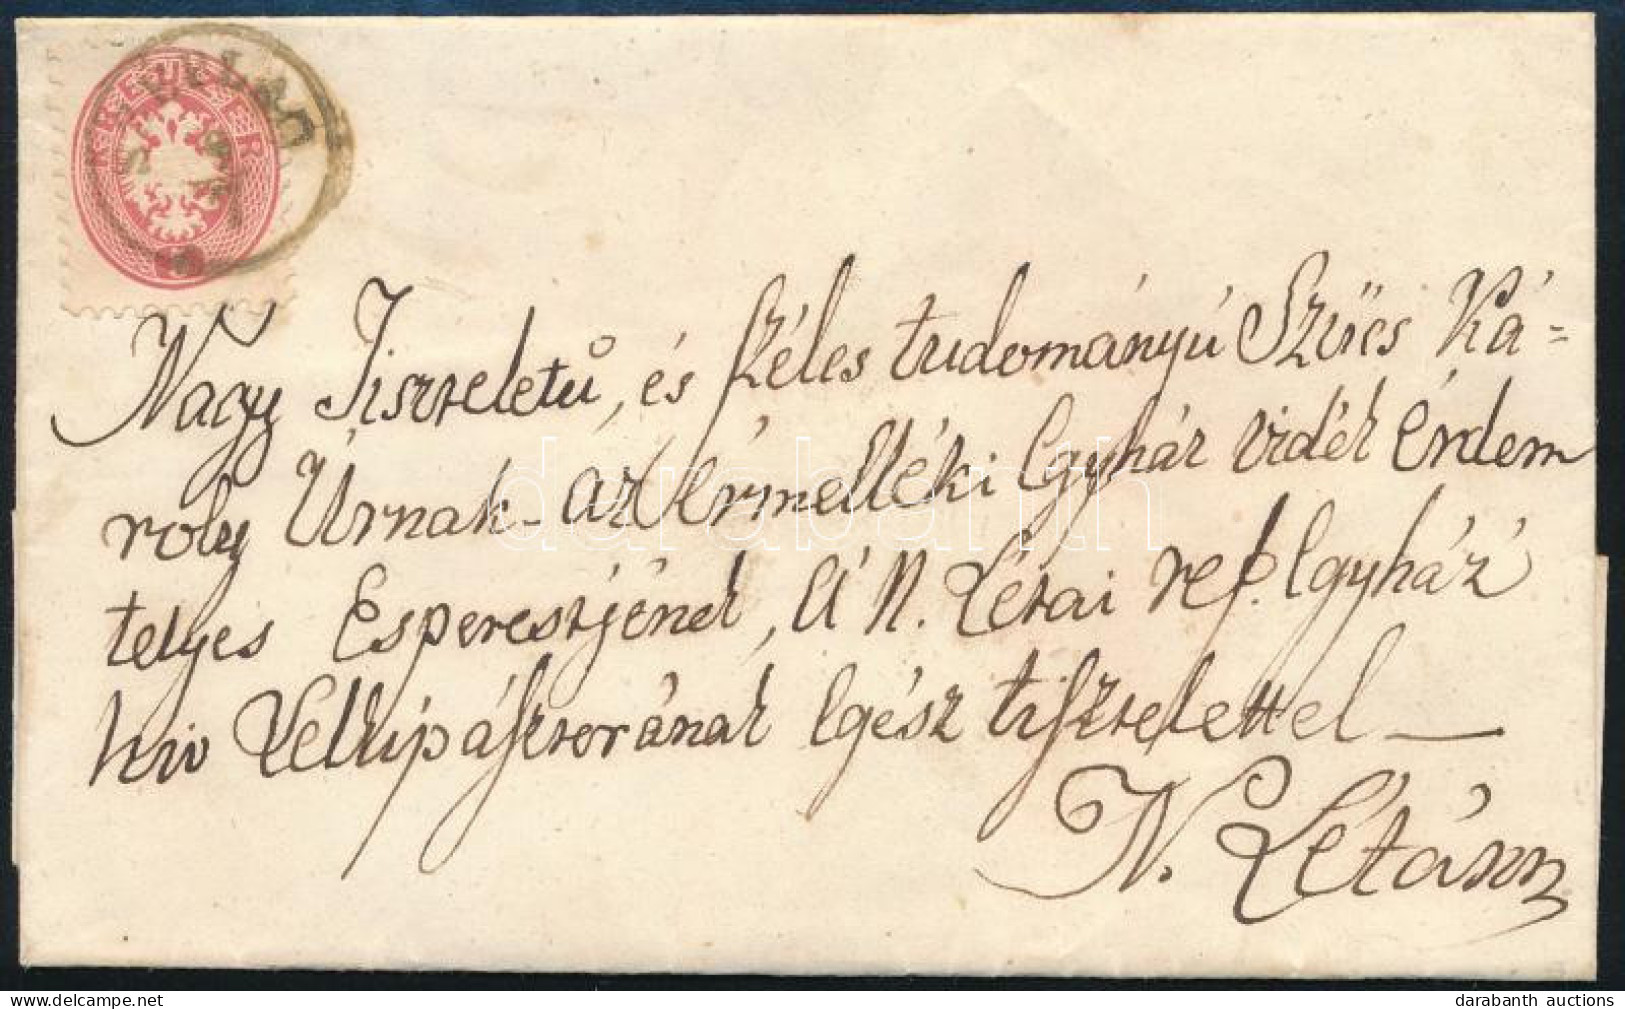 KREUZER
Nagy Tiszteletü, és széles tudományú Szücs Ká=
roly Úrnak - az érmelléki Egyház vidék Érdem
telyes Esperestjének, A' N. Létai ref. Egyház
hiv Lelkipásztorának Egész tisztelettel —
N. Létánn
darabanth
darabanth auctions